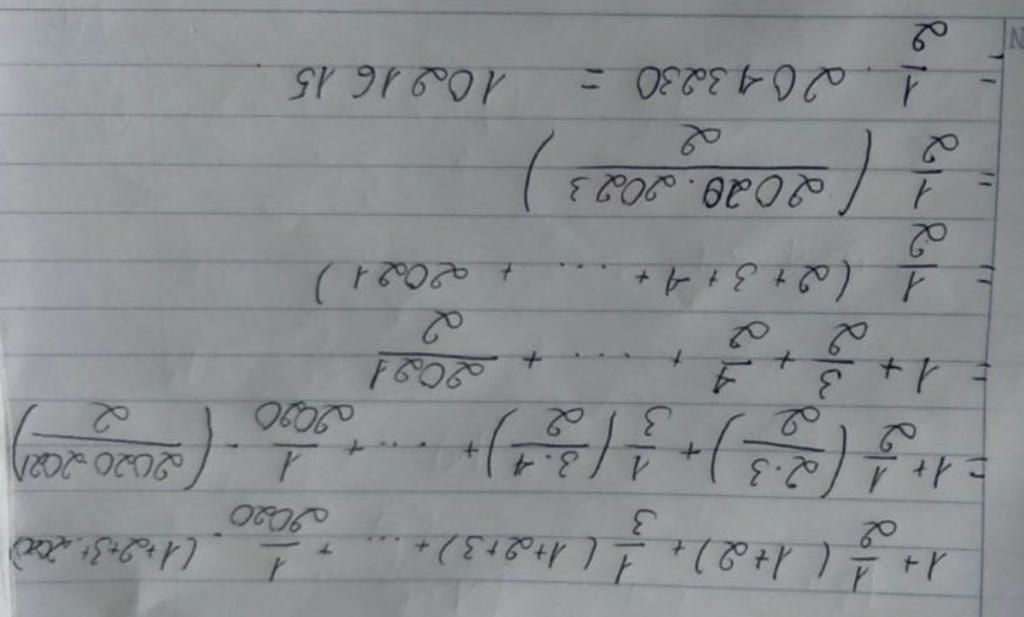 1 + 1/2 (1+2) + 1/3 (1+2+3) + ... + 1/2020 . (1+2+3+..2020)
= 1 + 1/2 (2.3/2) + 1/3 (3.4/2) + ... + 1/2020 . (2020.2021/2)
= 1 + 3/2 + 4/2 + ... + 2021/2
= 1/2 (2+3+4+ ... + 2021)
= 1/2 (2020.2023/2)
= 1/2 . 2043230 = 1021615